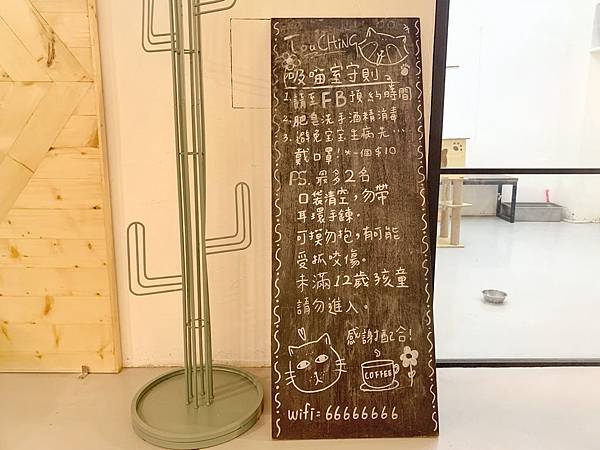 TouCHiNG
吸喵室守則
1. 請至FB預約時間
2. 肥皂洗手酒精消毒
3. 避免宝宝生病先...
戴口罩!*一個$10
PS. 最多2名
口袋清空,勿帶
耳環手鍊。
可摸勿抱,有可能
受抓咬傷。
未滿12歲孩童
請勿進入。
感謝配合!
COFFEE
wifi=66666666